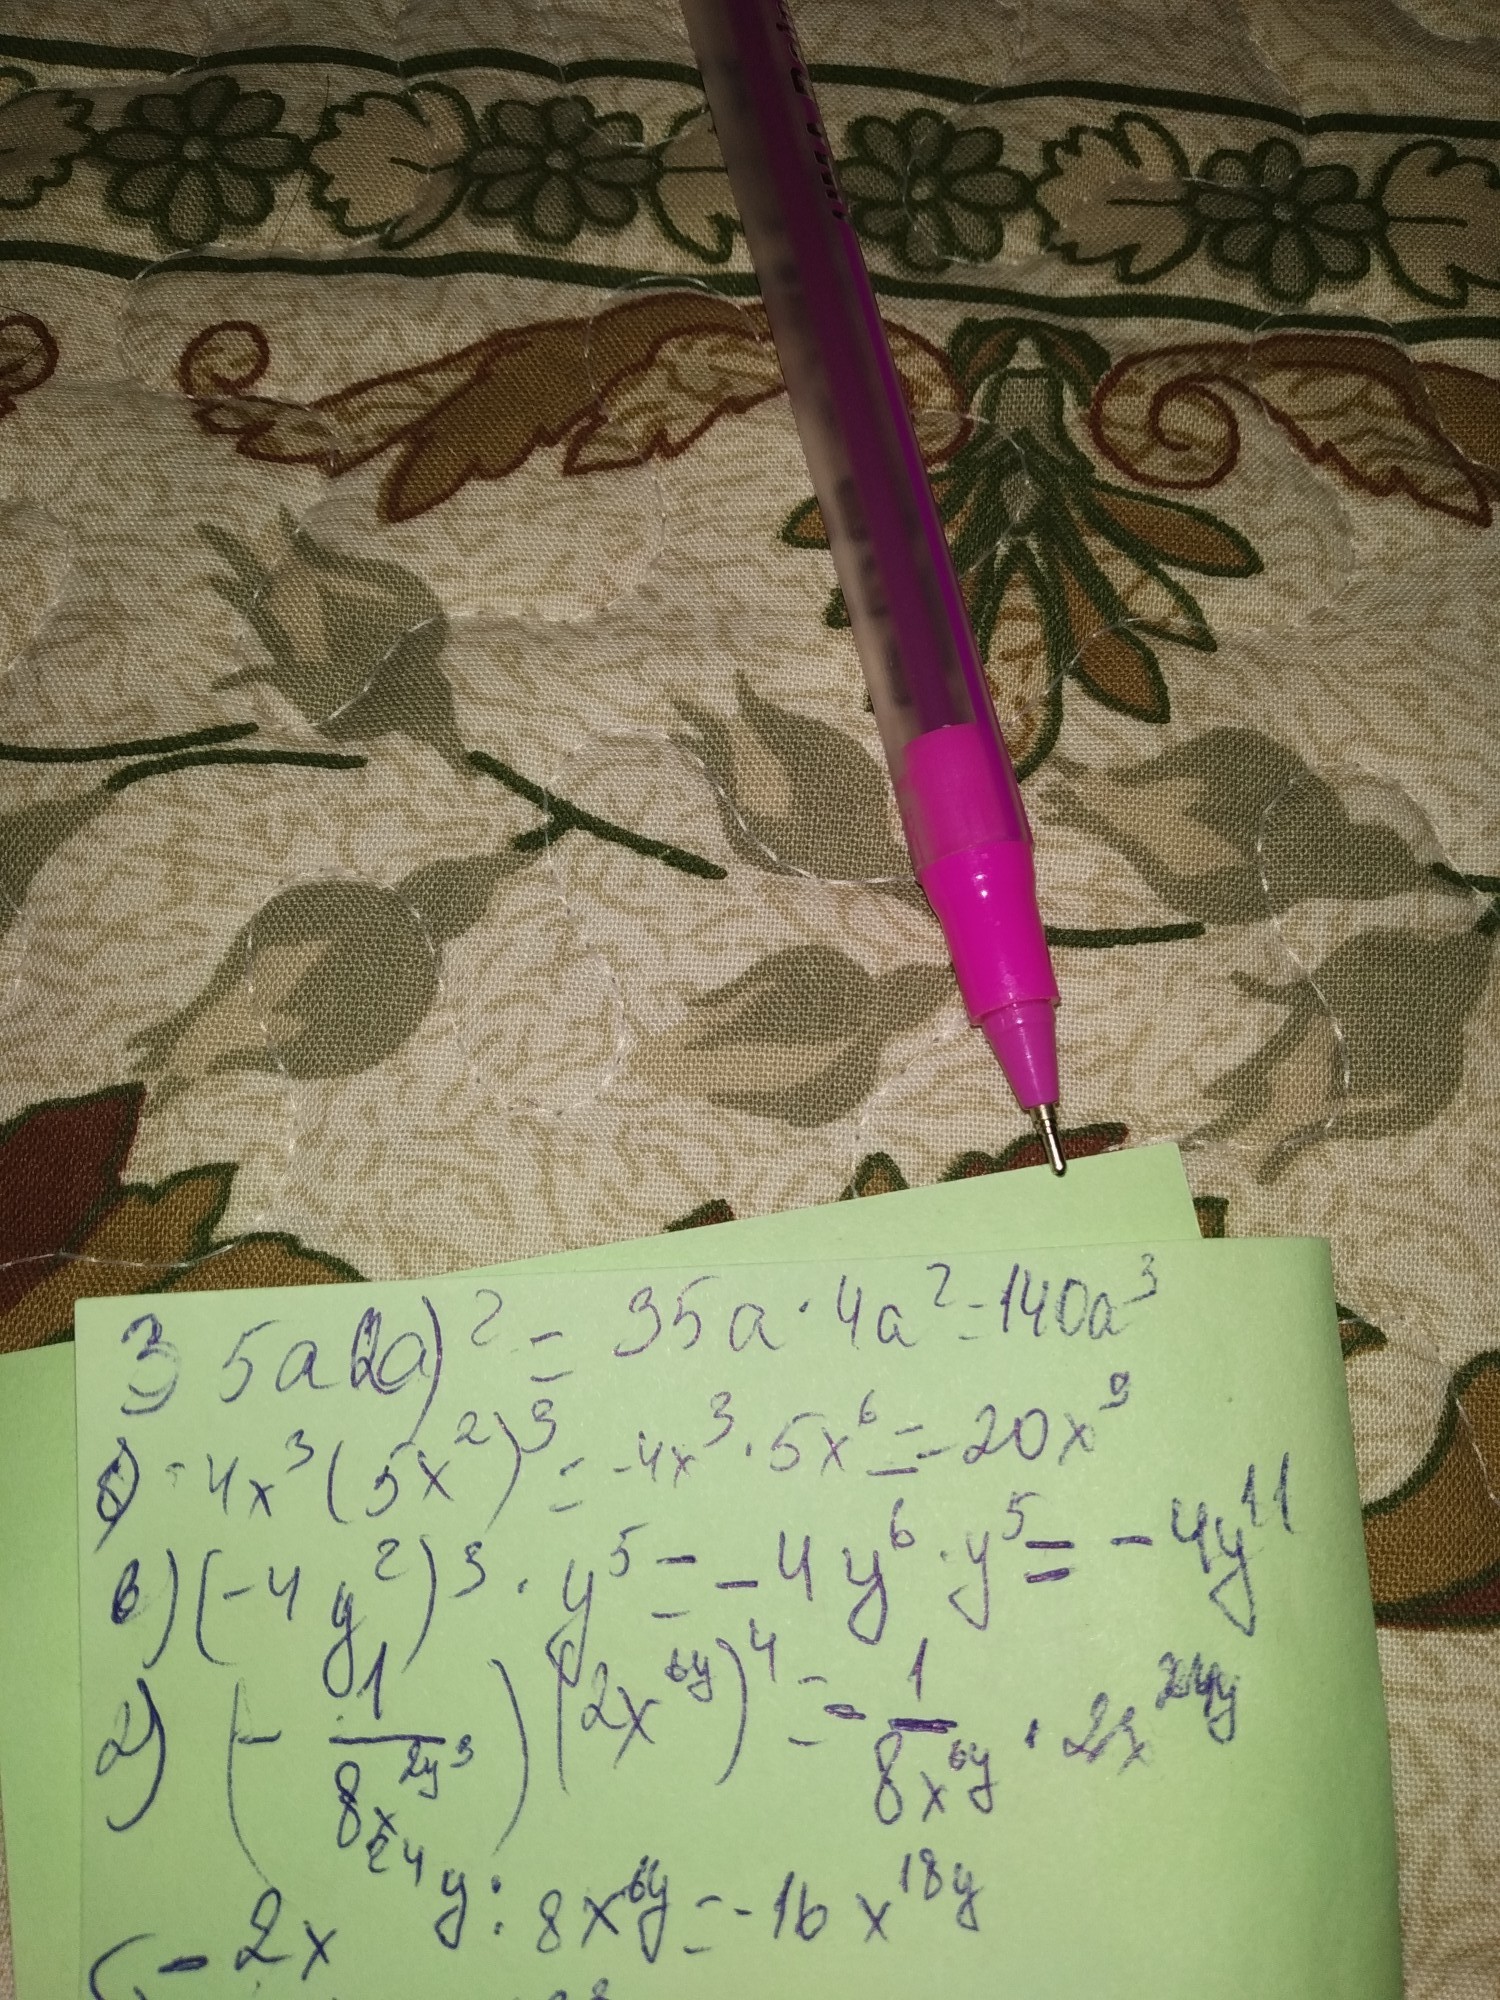 3 5a(2a)² = 35a · 4a² = 140a³
б) -4x³(5x²)³ = -4x³ · 5x⁶ = -20x⁹
в) (-4y²)³ · y⁵ = -4y⁶ · y⁵ = -4y¹¹
г) (- 1/8x^2y³) (2x^6y)⁴ = - 1/8x^6y · 2x^24y
- 2x^24y : 8x^6y = -16x^18y